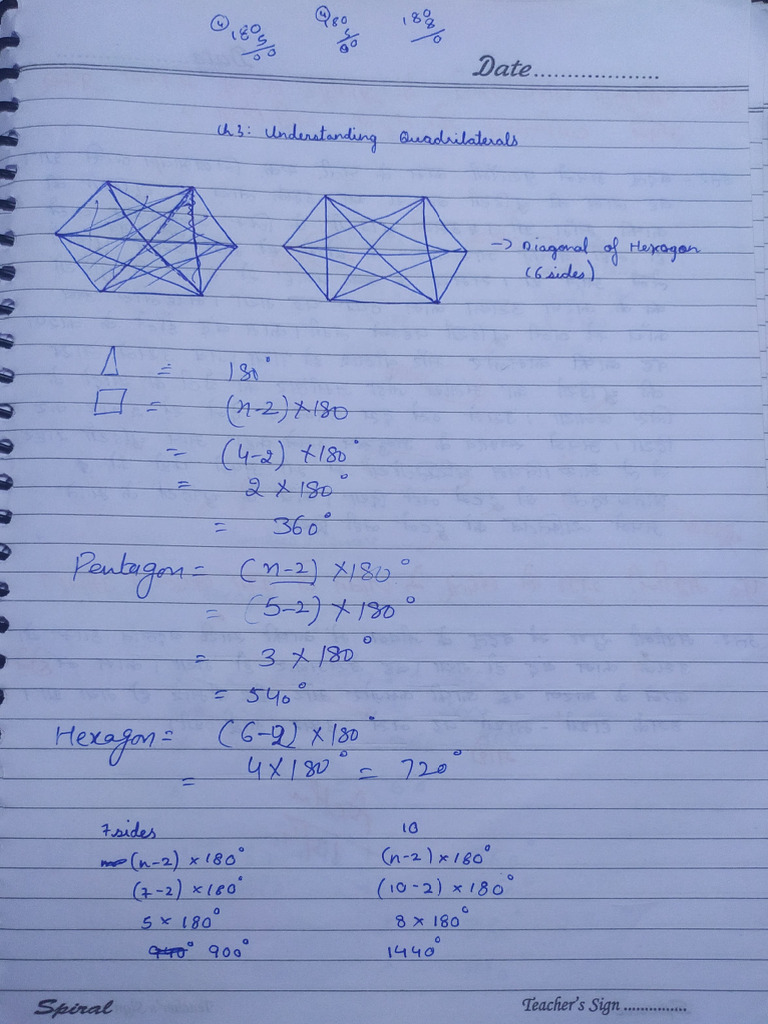 ④ 180 ④ 180 180
5 5 8
00 00 0
Date...................
Ch 3: Understanding Quadrilaterals
-> Diagonal of Hexagon
(6 sides)
△ = 180°
□ = (n-2)×180
= (4-2) ×180°
= 2 ×180°
= 360°
Pentagon = (n-2) ×180°
= (5-2) ×180°
= 3 ×180°
= 540°
Hexagon = (6-2) ×180°
= 4×180° = 720°
7 sides 10
(n-2) ×180° (n-2)×180°
(7-2) ×180° (10-2) ×180°
5 × 180° 8 × 180°
940° 900° 1440°
Spiral Teacher's Sign ...............